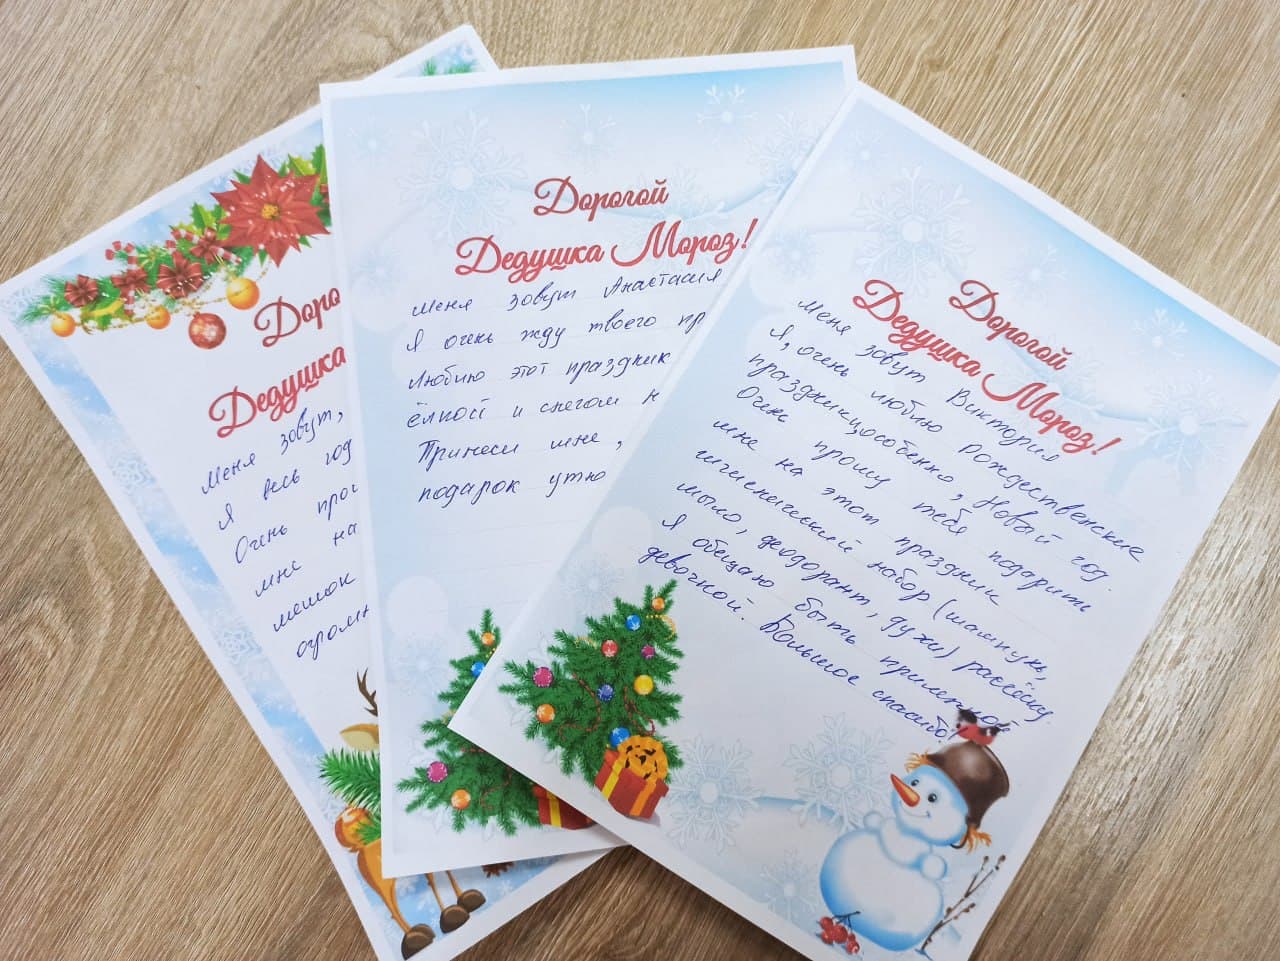 Дорогой
Дедушка
Меня зовут,
Я весь год
Очень
мне на
мешок
Дорогой
Дедушка Мороз!
Меня зовут Анастасия
Я очень жду твоего
Люблю этот праздник
ёлкой и снегом
Принеси мне,
подарок
Дорогой
Дедушка Мороз!
Меня зовут Виктория
Я, очень люблю Рождественские
праздники,особенно, Новый год
Очень прошу тебя подарить
мне на этот праздник
гигиенический набор (шампунь,
мыло, дезодорант, духи) расчёску.
Я обещаю быть прилежной
девочкой. Большое спасибо!